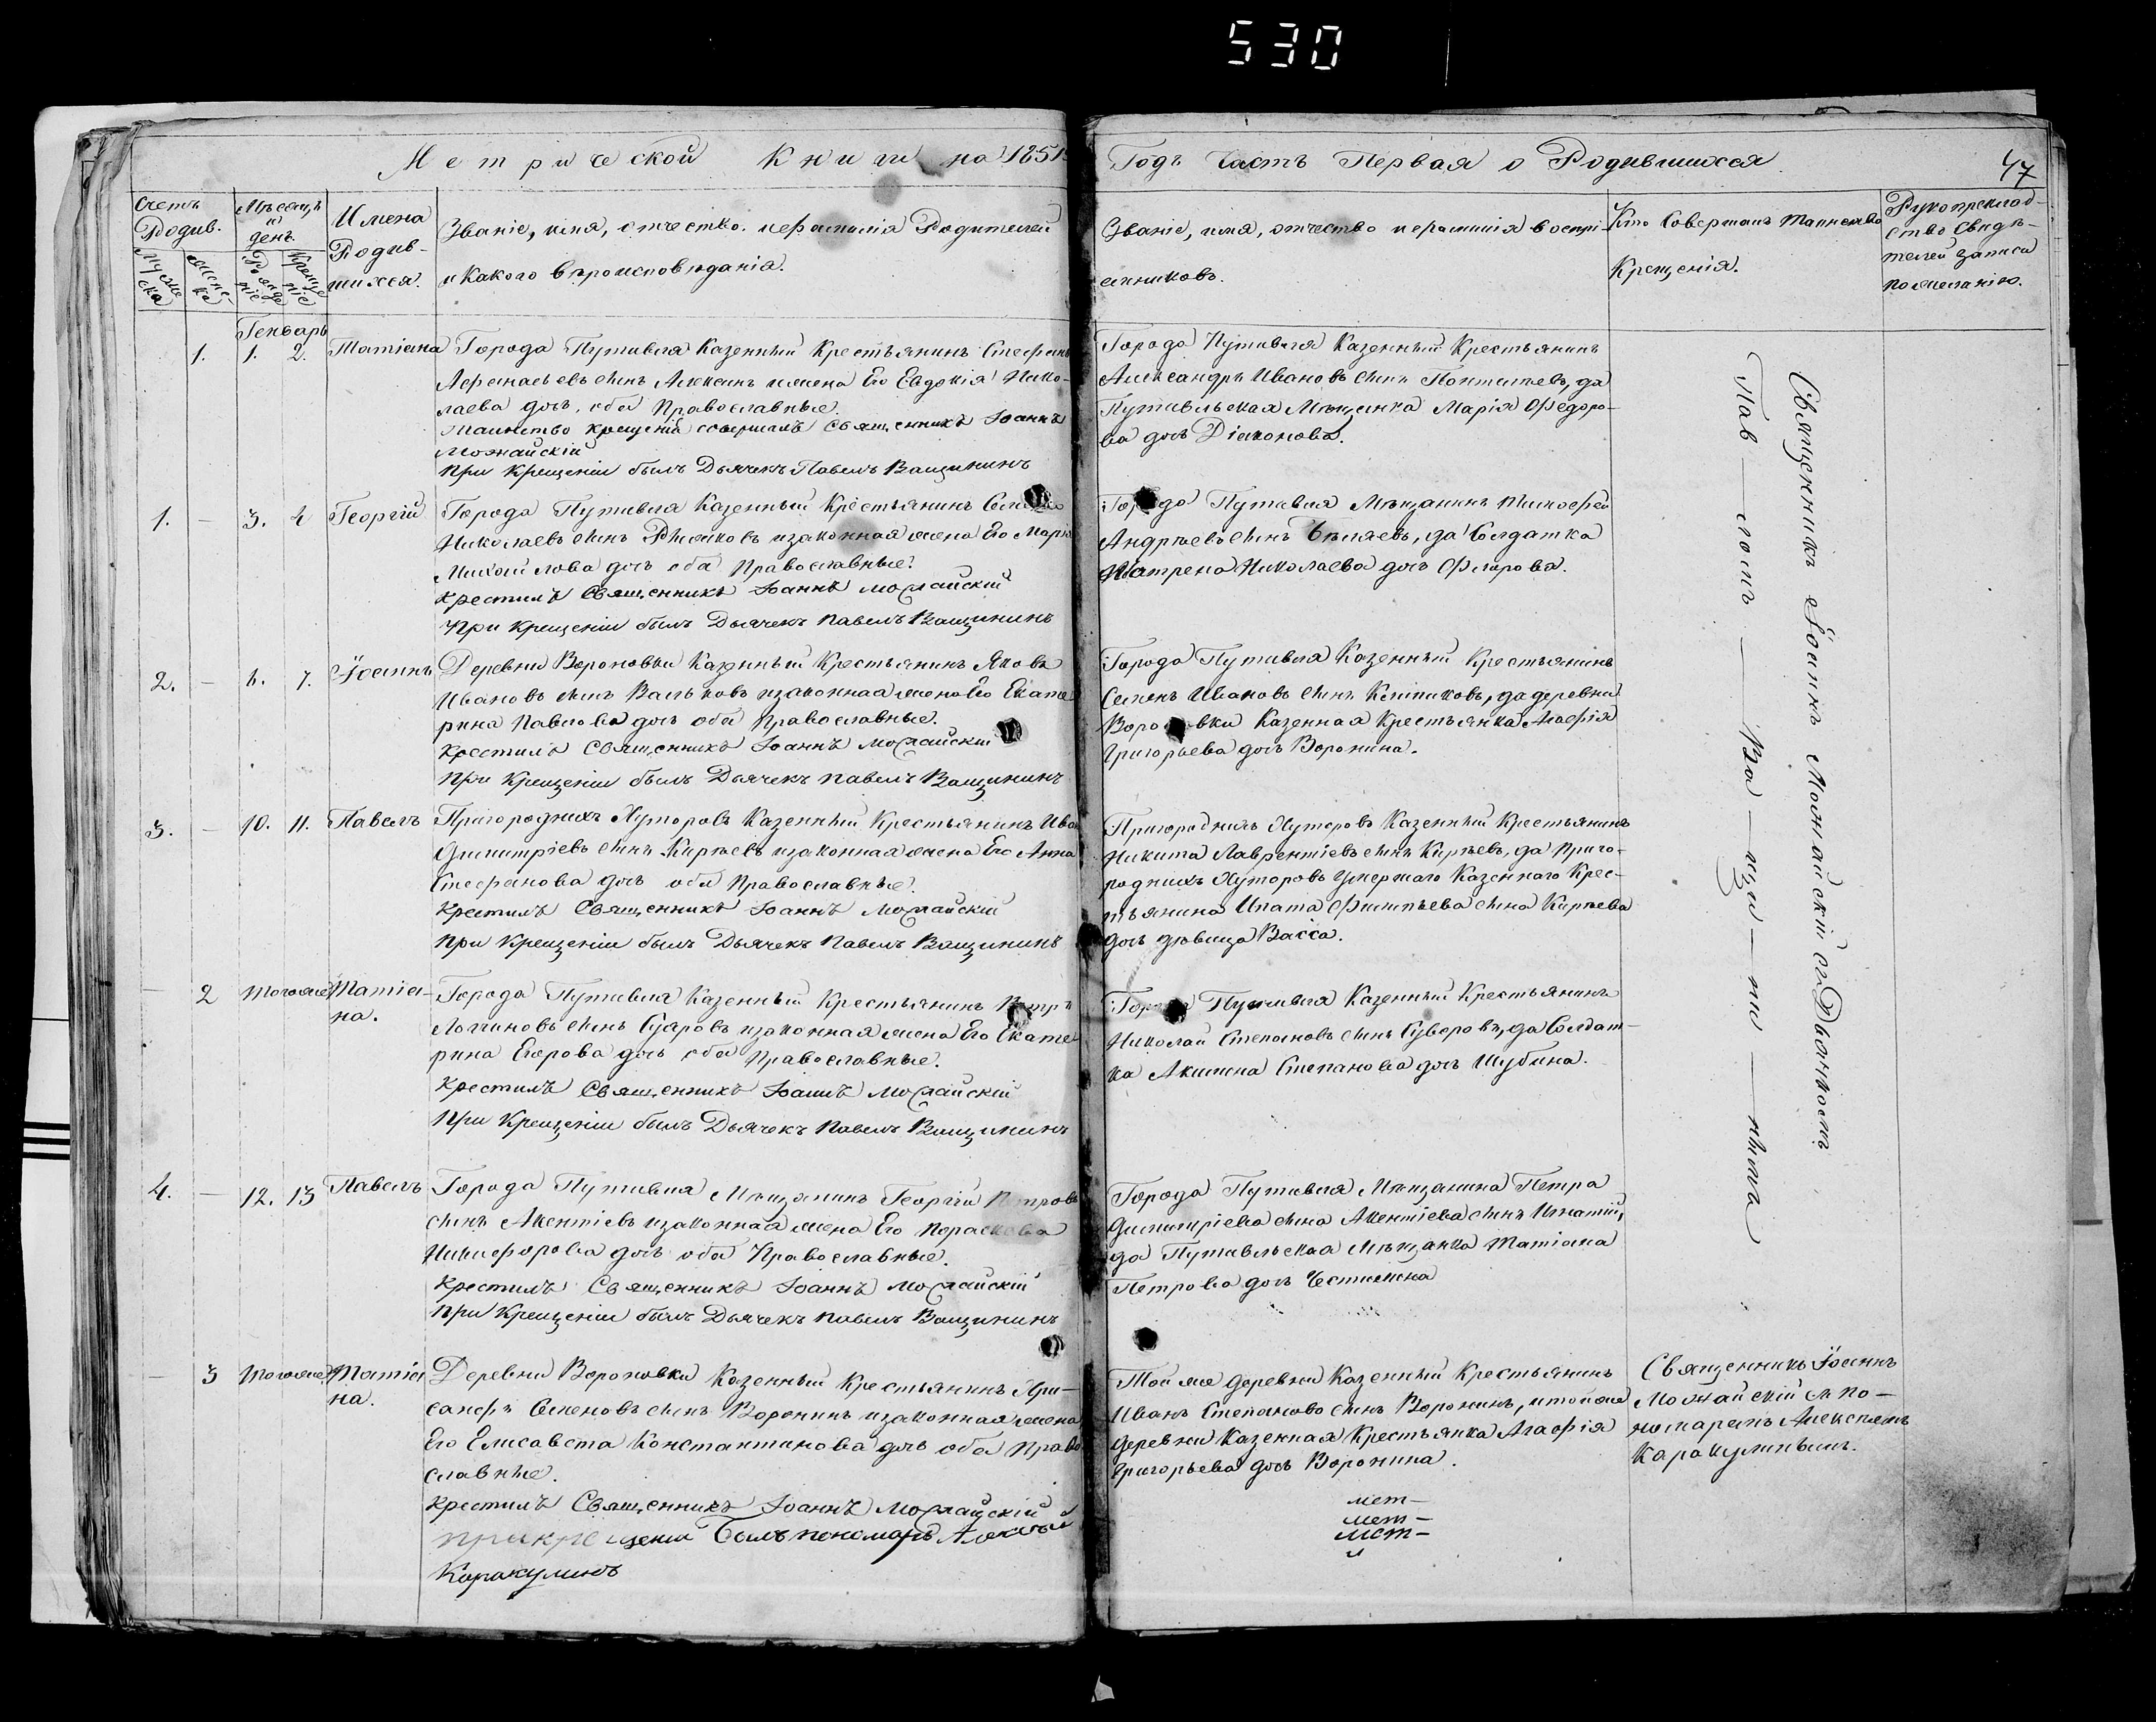 530
Метрической Книги на 1851й
Годъ Часть Первая о Родившихся
47
Счетъ Родив.
Мужеска
Женска
Мѣсяцъ и день
Рожденіе
Крещеніе
Имена Родив-
шихся.
Званіе, имя, отчество и фамилія Родителей
и какого вѣроисповѣданія.
Званіе, имя, отчество и фамилія воспрі-
емниковъ.
Кто Совершалъ Таинство
Крещенія.
Рукоприклад-
ство Свидѣ-
телей записи
по желанію.
Генварь
1. 1. 2. Татіана
Города Путивля Казенный Крестьянинъ Стефанъ
Афанасьевъ сынъ жена Его Евдокія Нико-
лаева дочь, оба Православные.
Таинство крещенія совершалъ Священникъ Іоаннъ
Можайскій
при Крещеніи былъ Дьячекъ Павелъ Ващининъ
Города Путивля Казенный Крестьянинъ
Александръ Ивановъ сынъ да
Путивльская Мѣщанка Марія Федоро-
ва дочь Діаконова.
1. – 3. 4 Георгій
Города Путивля Казенный Крестьянинъ
Николаевъ сынъ и законная жена Его Марія
Михайлова дочь оба Православные.
Крестилъ Священникъ Іоаннъ Можайскій
При Крещеніи былъ Дьячекъ Павелъ Ващининъ
Города Путивля Мѣщанинъ Тимофей
Андреевъ сынъ Бѣляевъ, да Солдатка
Матрена Николаева дочь Фларова.
2. – 6. 7. Іоаннъ
Деревни Вороновки Казенный Крестьянинъ Яковъ
Ивановъ сынъ Вальковъ и законная жена Его Екате
рина Павлова дочь оба Православные.
Крестилъ Священникъ Іоаннъ Можайскій
При Крещеніи былъ Дьячекъ Павелъ Ващининъ
Города Путивля Казенный Крестьянинъ
Семенъ Ивановъ сынъ да деревни
Вороновки Казенная Крестьянка Агафія
Григорьева дочь Воронина.
3. – 10. 11. Павелъ
Пригородныхъ Хуторовъ Казенный Крестьянинъ Иванъ
Димитріевъ сынъ Кирѣевъ и законная жена Его Анна
Стефанова дочь оба Православные.
Крестилъ Священникъ Іоаннъ Можайскій
при Крещеніи былъ Дьячекъ Павелъ Ващининъ
Пригородныхъ Хуторовъ Казенный Крестьянинъ
Никита Лаврентіевъ сынъ Кирѣевъ, да приго-
родныхъ Хуторовъ умершаго Казеннаго Крес-
тьянина Ипата сына Кирѣева
дочь дѣвица Васса.
– 2 того же Татіа-
на.
Города Путивля Казенный Крестьянинъ Петръ
Логиновъ сынъ и законная жена Его Екате
рина Егорова дочь оба Православные.
Крестилъ Священникъ Іоаннъ Можайскій
При Крещеніи былъ Дьячекъ Павелъ Ващининъ
Города Путивля Казенный Крестьянинъ
Николай Степановъ сынъ Суворовъ, да Солдат-
ка Акилина Степанова дочь Шубина.
4. – 12. 13 Павелъ
Города Путивля Мѣщанинъ Георгій Петровъ
сынъ Акентіевъ и законная жена Его Пораскева
Никифорова дочь оба Православные.
Крестилъ Священникъ Іоаннъ Можайскій
при Крещеніи былъ Дьячекъ Павелъ Ващининъ
Города Путивля Мѣщанина Петра
Димитріева сына Акентіева сынъ Игнатій,
да Путивльская Мѣщанка Татіана
Петрова дочь
– 3 того же Татіа
на.
Деревни Вороновки Казенный Крестьянинъ Хри-
санфъ Семеновъ сынъ Воронинъ и законная жена
Его Елисавета Константинова дочь оба Право
славные.
Крестилъ Священникъ Іоаннъ Можайскій
при крещеніи былъ пономарь Алексѣй
Каракулинъ
Той же деревни Казенный Крестьянинъ
Иванъ Степановъ сынъ Воронинъ, и той же
деревни Казенная Крестьянка Агафія
Григорьева дочь Воронина.
Священникъ Іоаннъ
Можайскій съ по-
номаремъ Алексѣемъ
Каракулинымъ.
мет-
мет-
мет-
Священникъ Іоаннъ Можайскій съ Дьячкомъ
Пав — ломъ — Ва — щи — ни — нымъ